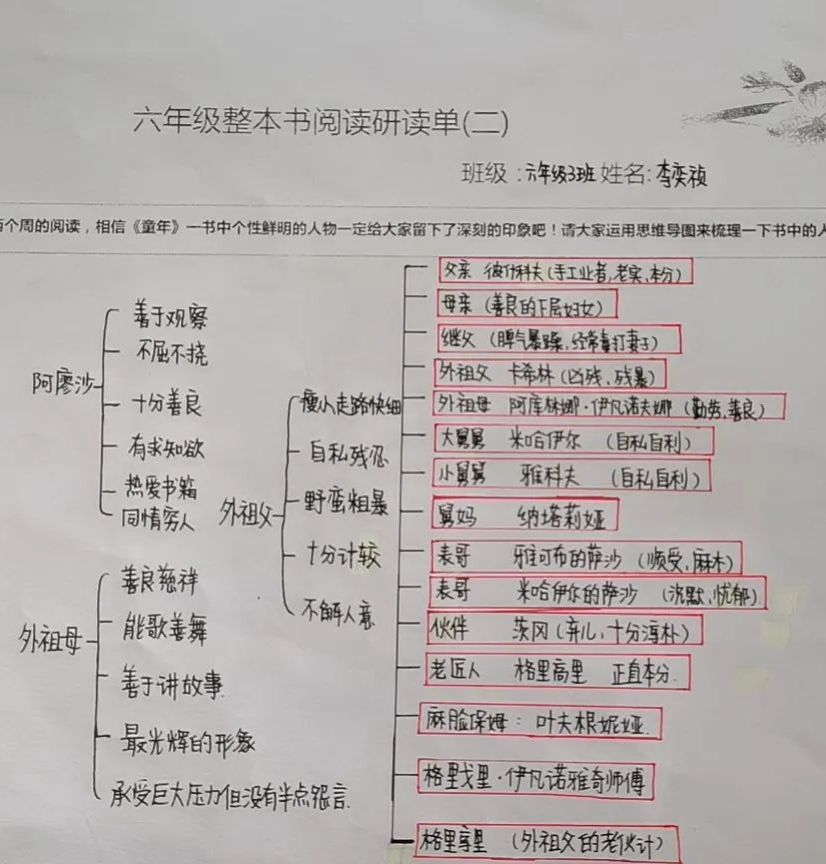 六年级整本书阅读研读单(二)
班级：六年级3班 姓名：李奕祯
个周的阅读，相信《童年》一书中个性鲜明的人物一定给大家留下了深刻的印象吧！请大家运用思维导图来梳理一下书中的
阿廖沙
善于观察
不屈不挠
十分善良
有求知欲
热爱书籍
同情穷人
外祖母
善良慈祥
能歌善舞
善于讲故事.
最光辉的形象
承受巨大压力但没有半点怨言.
外祖父
瘦小走路快细
自私残忍
野蛮粗暴
十分计较
不解人意
父亲 彼什科夫(手工业者,老实,本份)
母亲 (善良的下层妇女)
继父 (脾气暴躁,经常毒打妻子)
外祖父 卡希林(凶残、残暴)
外祖母 阿库林娜·伊凡诺夫娜 (勤劳,善良)
大舅舅 米哈伊尔 (自私自利)
小舅舅 雅科夫 (自私自利)
舅妈 纳塔莉娅
表哥 雅可布的萨沙 (顺受、麻木)
表哥 米哈伊尔的萨沙 (沉默,忧郁)
伙伴 茨冈(弃儿,十分淳朴)
老匠人 格里高里 正直本分.
麻脸保姆：叶夫根妮娅.
格里戈里·伊凡诺雅奇师傅
(外祖父的老伙计)